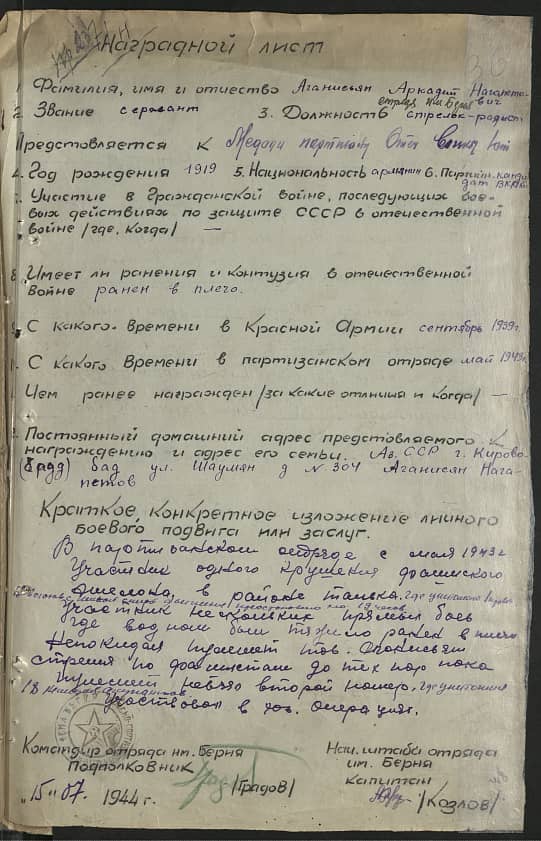 Наградной лист
36
1. Фамилия, имя и отчество Аганисьян Аркадий Нагапето-
вич
отряд им Берня
2. Звание сержант 3. Должность стрелок-радист
Представляется к Медали партизану Отеч
4. Год рождения 1919 5. Национальность армянин 6. Партийн. канди
дат ВКПб
Участие в Гражданской войне, последующих бое-
вых действиях по защите СССР в отечественной
войне /где, когда/ —
8. Имеет ли ранения и контузия в отечественной
войне ранен в плечо.
9. С какого времени в Красной Армии сентябрь 1939г.
С какого времени в партизанском отряде май 1943г.
Чем ранее награжден /за какие отличия и когда/ —
Постоянный домашний адрес представляемого к
награждению и адрес его семьи. Аз. ССР г. Кирово-
бад ул. Шаумян д № 304 Аганисян Нага-
петов
Краткое, конкретное изложение личного
боевого подвига или заслуг.
В партизанском отряде с мая 1943г
Участник одного крушения фашистского
эшелона, в районе где
Участник нескольких прямых боев
где в одном был тяжело ранен в плечо
Непокидая пулемет тов.
стрелял по фашистам до тех пор пока
пулемет невзял второй номер, где уничтожил
18
Участвовал в хоз. операциях.
Командир отряда им. Берня
Подполковник /Градов/
Нач. штаба отряда
им. Берня
капитан /Козлов/
"15" 07. 1944г.